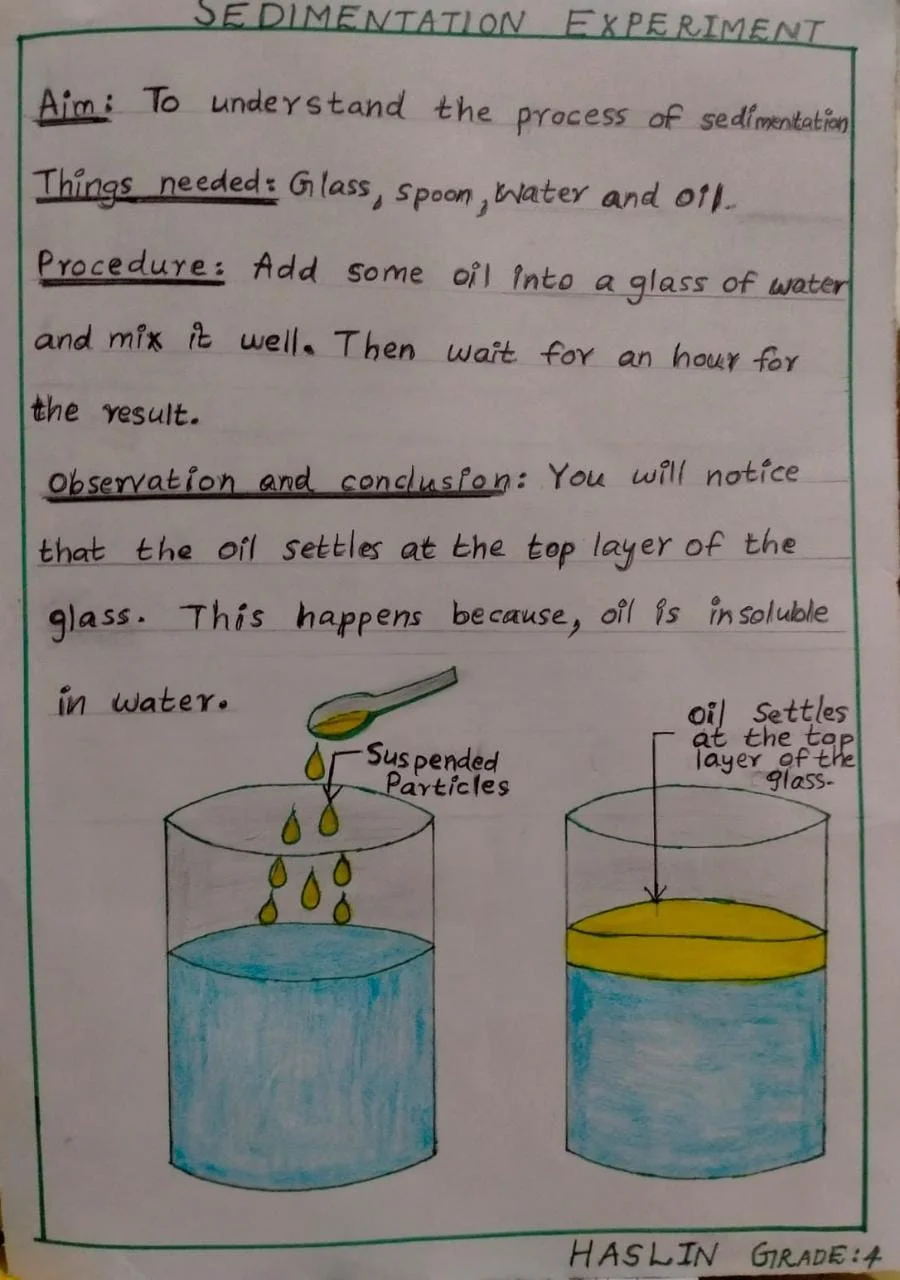 SEDIMENTATION EXPERIMENT
Aim: To understand the process of sedimentation
Things needed: Glass, spoon, Water and oil.
Procedure: Add some oil into a glass of water
and mix it well. Then wait for an hour for
the result.
Observation and conclusion: You will notice
that the oil settles at the top layer of the
glass. This happens because, oil is insoluble
in water.
Suspended
Particles
Oil Settles
at the top
layer of the
glass.
HASLIN GRADE:4